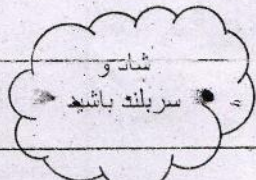 شاد و
سربلند باشید